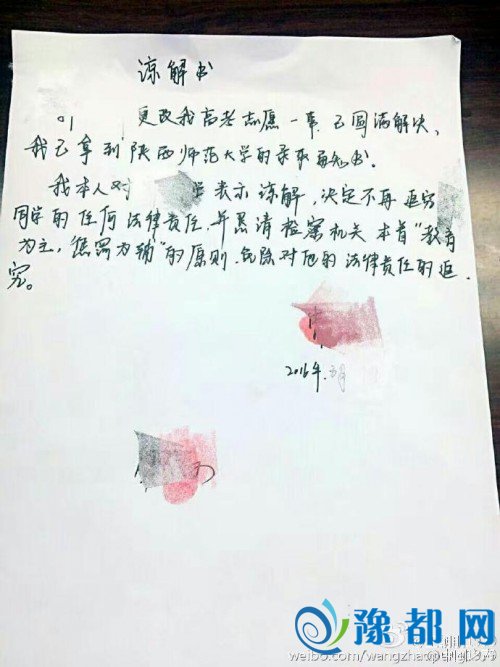 谅解书
更改我高考志愿一事已圆满解决,
我已拿到陕西师范大学的录取通知书.
我本人对 表示谅解,决定不再追究
同学的任何法律责任,并恳请检察机关本着"教育
为主,惩罚为辅"的原则.免除对他的法律责任的追
究。
2016年.
豫都网
weibo.com/wangzha